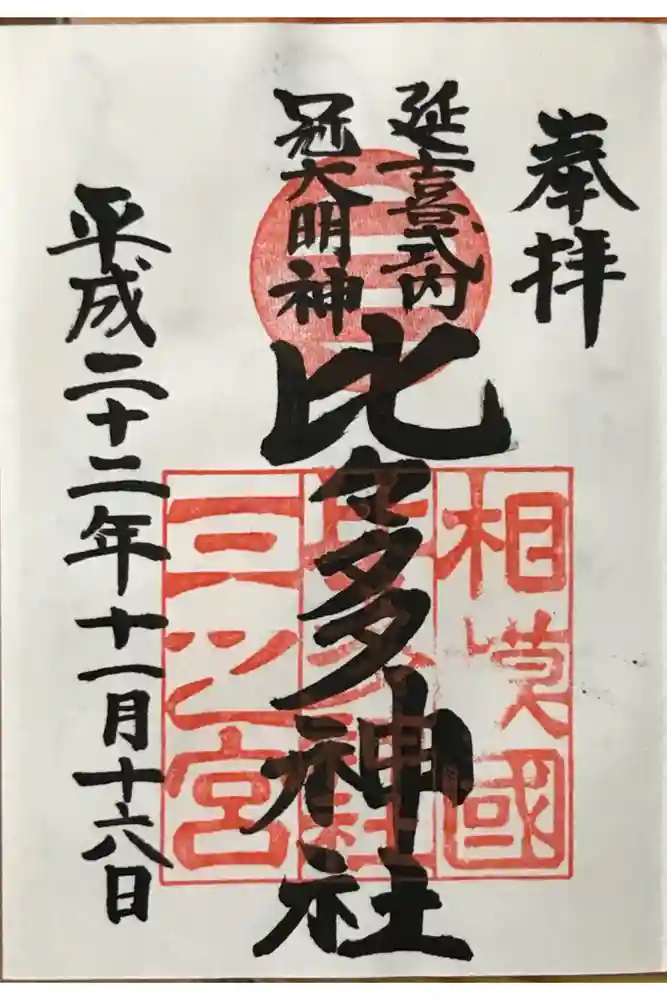 奉拝
延喜式内
冠大明神
比々多神社
平成二十二年十一月十六日
三
相模國
比々多神社
三之宮